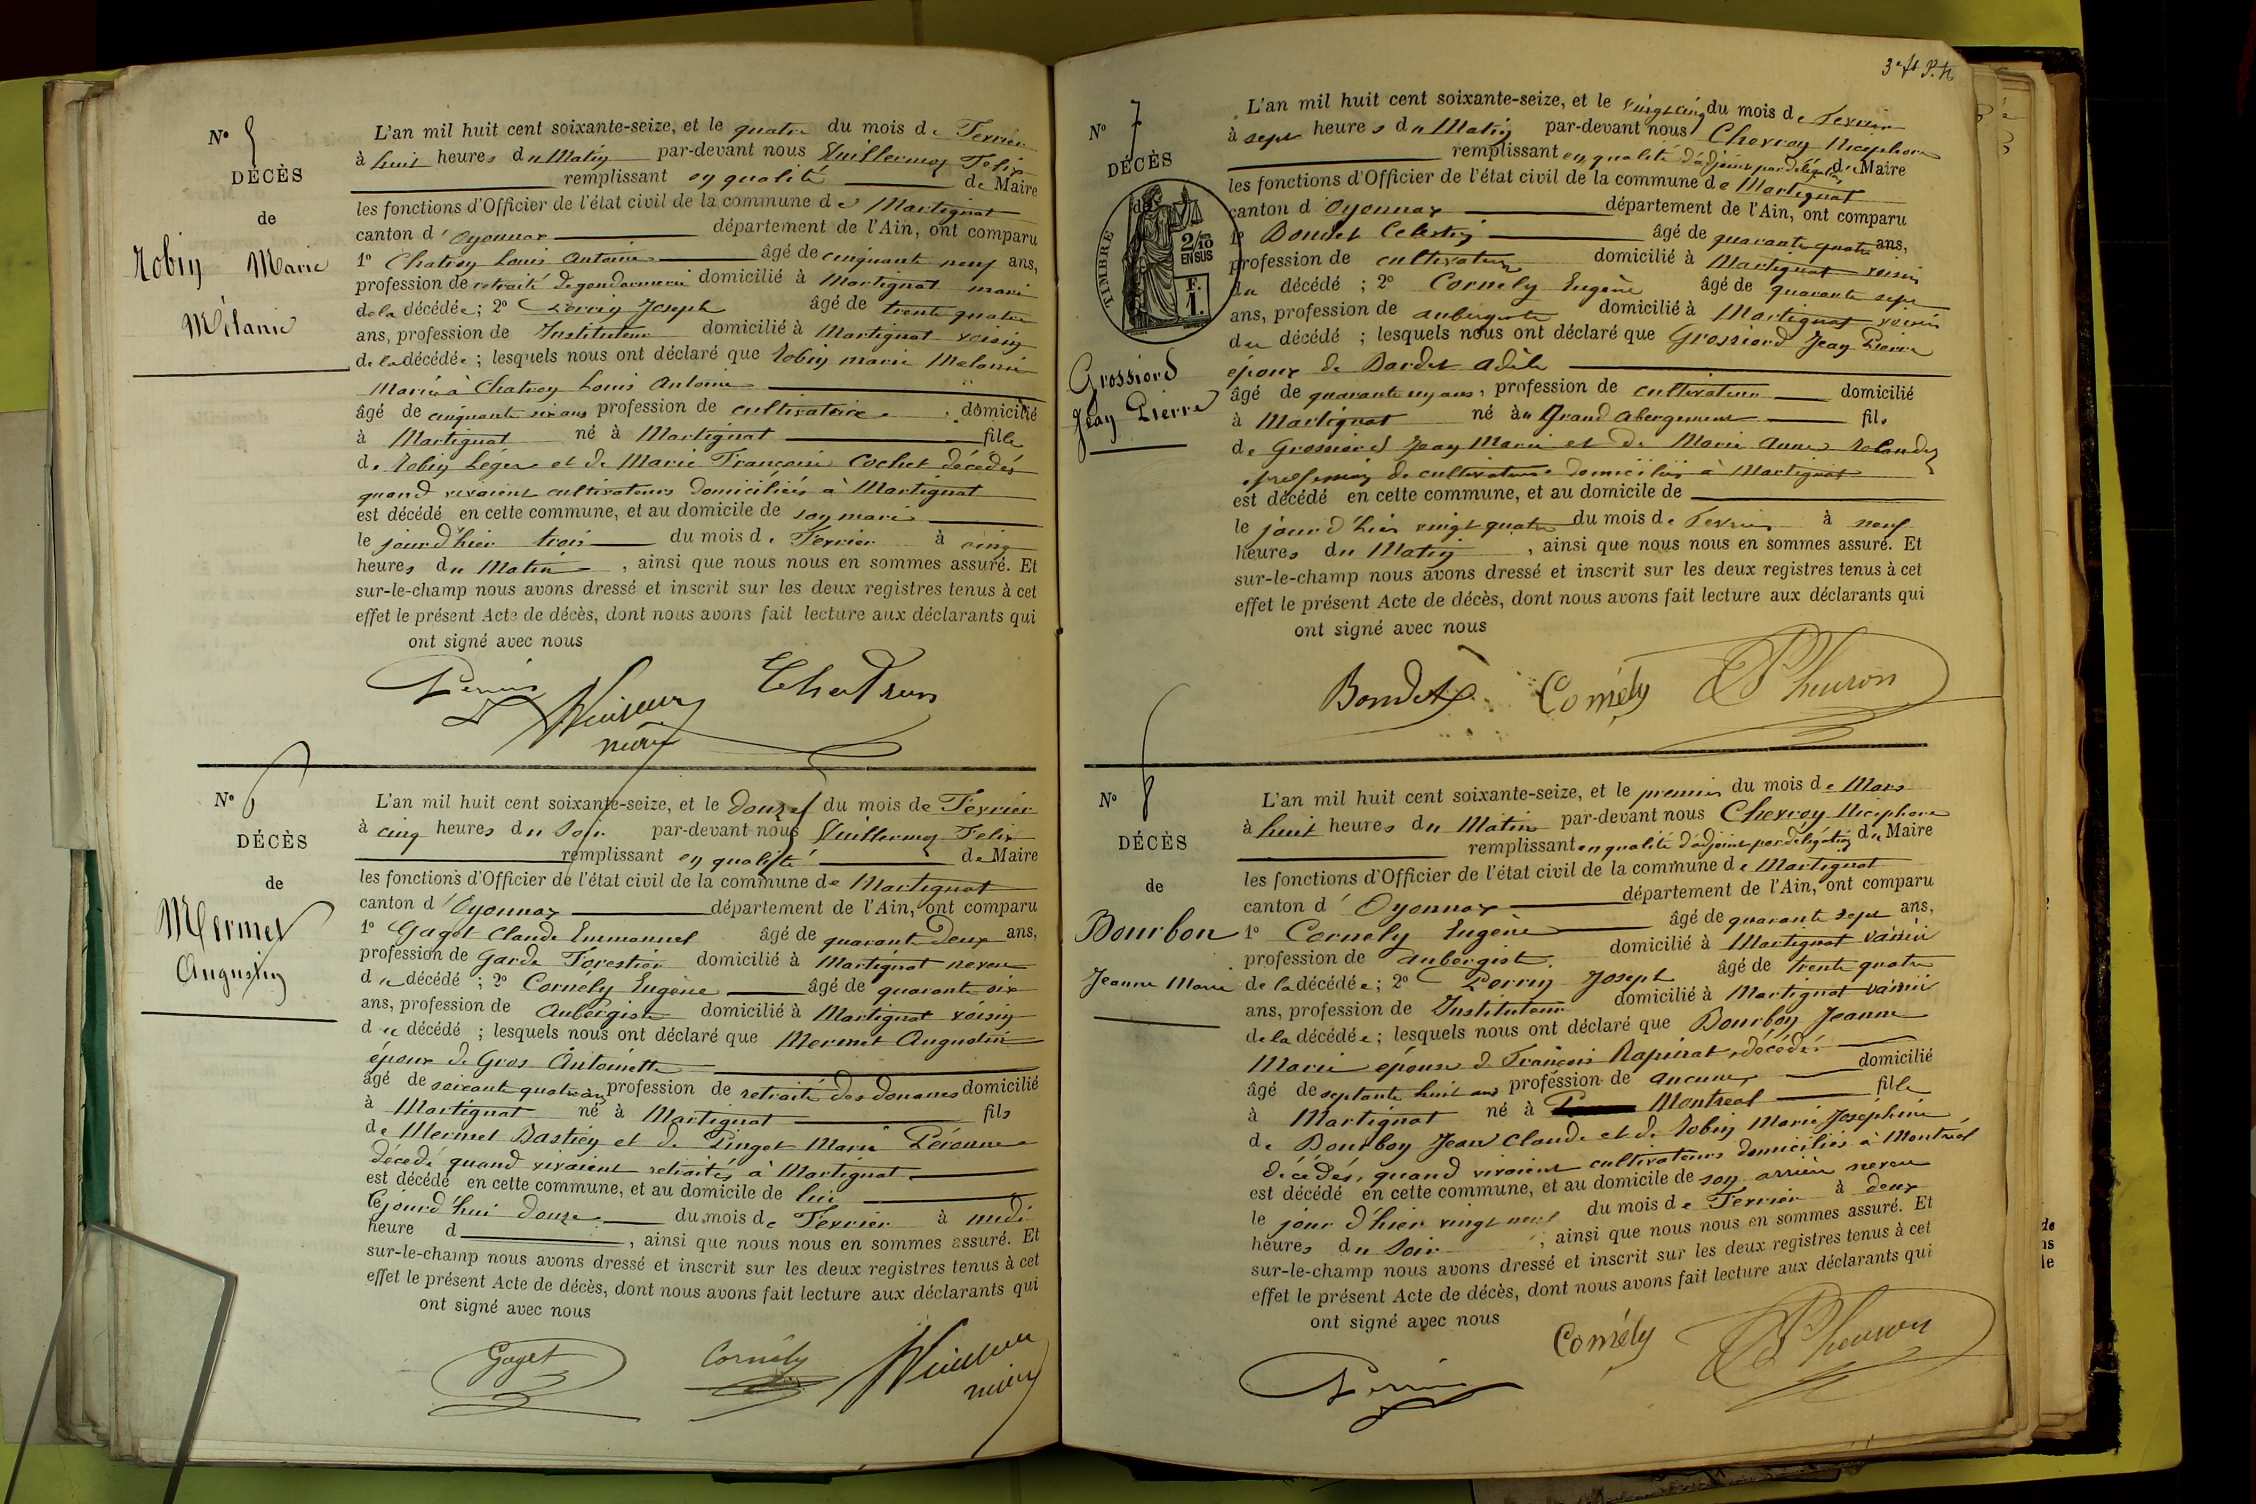 N° 5
DÉCÈS
de
Robin Marie
Mélanie
L'an mil huit cent soixante-seize, et le quatre du mois de Fevrier
à huit heures du Matin par-devant nous Vuillermoz Felix
remplissant en qualité de Maire
les fonctions d'Officier de l'état civil de la commune de Martignat
canton d'Oyonnax département de l'Ain, ont comparu
1° Chatron Louis Antoine âgé de cinquante neuf ans,
profession de retraité de gendarmerie domicilié à Martignat mari
de la décédée ; 2° Perrin Joseph âgé de trente quatre
ans, profession de Instituteur domicilié à Martignat voisin
de la décédée ; lesquels nous ont déclaré que Robin marie Melanie
Mariée à Chatron Louis Antoine
âgé de cinquante six ans profession de cultivatrice , domicilié
à Martignat né à Martignat fille
de Robin Léger et de Marie Françoise Cochet décédés
quand vivaient cultivateurs domiciliés à Martignat
est décédé en cette commune, et au domicile de son mari
le jour d'hier trois du mois de Fevrier à cinq
heures du Matin , ainsi que nous nous en sommes assuré. Et
sur-le-champ nous avons dressé et inscrit sur les deux registres tenus à cet
effet le présent Acte de décès, dont nous avons fait lecture aux déclarants qui
ont signé avec nous
Perrin
N° 6
DÉCÈS
de
Mermet
Augustin
L'an mil huit cent soixante-seize, et le douze du mois de Fevrier
à cinq heures du Soir par-devant nous Vuillermoz Felix
remplissant en qualité de Maire
les fonctions d'Officier de l'état civil de la commune de Martignat
canton d'Oyonnax département de l'Ain, ont comparu
1° Gaget Claude Emmanuel âgé de quarante deux ans,
profession de Garde Forestier domicilié à Martignat neveu
du décédé ; 2° Cornely Eugène âgé de quarante six
ans, profession de Aubergiste domicilié à Martignat voisin
du décédé ; lesquels nous ont déclaré que Mermet Augustin
époux de Gros Antoinette
âgé de soixante quatre ans profession de retraité des douanes domicilié
à Martignat né à Martignat fils
de Mermet Bastien et de Pingot Marie Péronne
décédé quand vivaient retraités à Martignat
est décédé en cette commune, et au domicile de lui
Cejourd'hui douze du mois de Fevrier à midi
heure d , ainsi que nous nous en sommes assuré. Et
sur-le-champ nous avons dressé et inscrit sur les deux registres tenus à cet
effet le présent Acte de décès, dont nous avons fait lecture aux déclarants qui
ont signé avec nous
Gaget Cornély
N° 7
DÉCÈS
de
TIMBRE
2/10
EN SUS
F.
1.
Grossiord
Jean Pierre
L'an mil huit cent soixante-seize, et le vingt cinq du mois de Fevrier
à sept heures du Matin par-devant nous Chevron Nicephore
remplissant en qualité d'adjoint par délégation du Maire
les fonctions d'Officier de l'état civil de la commune de Martignat
canton d Oyonnax département de l'Ain, ont comparu
1° Bondet Celestin âgé de quarante quatre ans,
profession de cultivateur domicilié à Martignat voisin
du décédé ; 2° Cornely Eugène âgé de quarante sept
ans, profession de aubergiste domicilié à Martignat voisin
du décédé ; lesquels nous ont déclaré que Grossiord Jean Pierre
époux de Bardet Adèle
âgé de quarante un ans, profession de cultivateur domicilié
à Martignat né au Grand Abergement fils
de Grossiord Jean Marie et de Marie Anne Rolandez
profession de cultivateurs domiciliés à Martignat
est décédé en cette commune, et au domicile de
le jour d'hier vingt quatre du mois de Fevrier à neuf
heures du Matin , ainsi que nous nous en sommes assuré. Et
sur-le-champ nous avons dressé et inscrit sur les deux registres tenus à cet
effet le présent Acte de décès, dont nous avons fait lecture aux déclarants qui
ont signé avec nous
Bondet Cornély
N° 8
DÉCÈS
de
Bourbon
Jeanne Marie
L'an mil huit cent soixante-seize, et le premier du mois de Mars
à huit heures du Matin par-devant nous Chevron Nicephore
remplissant en qualité d'adjoint par délégation du Maire
les fonctions d'Officier de l'état civil de la commune de Martignat
canton d' Oyonnax département de l'Ain, ont comparu
1° Cornely Eugène âgé de quarante sept ans,
profession de aubergiste domicilié à Martignat voisin
de la décédée ; 2° Perrin Joseph âgé de trente quatre
ans, profession de Instituteur domicilié à Martignat voisin
de la décédée ; lesquels nous ont déclaré que Bourbon Jeanne
Marie épouse de François Rapinat, décédé
âgé de septante huit ans profession de aucune domicilié
à Martignat né à Montreal fille
de Bourbon Jean Claude et de Robin Marie Josephine
décédés, quand vivaient cultivateurs domiciliés à Montréal
est décédé en cette commune, et au domicile de son arrière neveu
le jour d'hier vingt neuf du mois de Fevrier à deux
heures du Soir , ainsi que nous nous en sommes assuré. Et
sur-le-champ nous avons dressé et inscrit sur les deux registres tenus à cet
effet le présent Acte de décès, dont nous avons fait lecture aux déclarants qui
ont signé avec nous
Cornély
Perrin